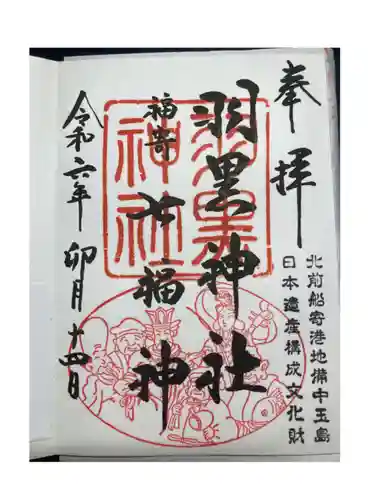 奉拝
北前船寄港地備中玉島
日本遺産構成文化財
羽黒神社
福寄
七福神
令和六年 卯月十四日
羽黒
神社